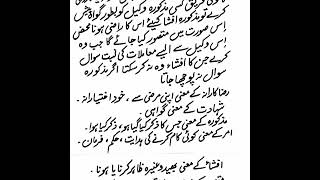 کرے تو مذکورہ افشا کیلئے اس کا راضی ہونا محض
اس صورت میں متصور کیا جائے گا جب وہ
اس وکیل سے ایسے معاملات کی بابت سوال
کرے جن کا افشاء وہ نہ کر سکتا اگر مذکورہ
سوال نہ پوچھا جاتا
رضا کارانہ کے معنی اپنی مرضی سے ، خود اختیارانہ ۔
شہادت کے معنی گواہی ۔
مذکورہ کے معنی جس کا ذکر کیا گیا ہو ، ذکر کیا ہوا ۔
امر کے معنی کوئی کام کرنے کی ہدایت ، حکم ، فرمان ۔
افشاء کے معنی بھید وغیرہ ظاہر کرنا یا ہونا ۔